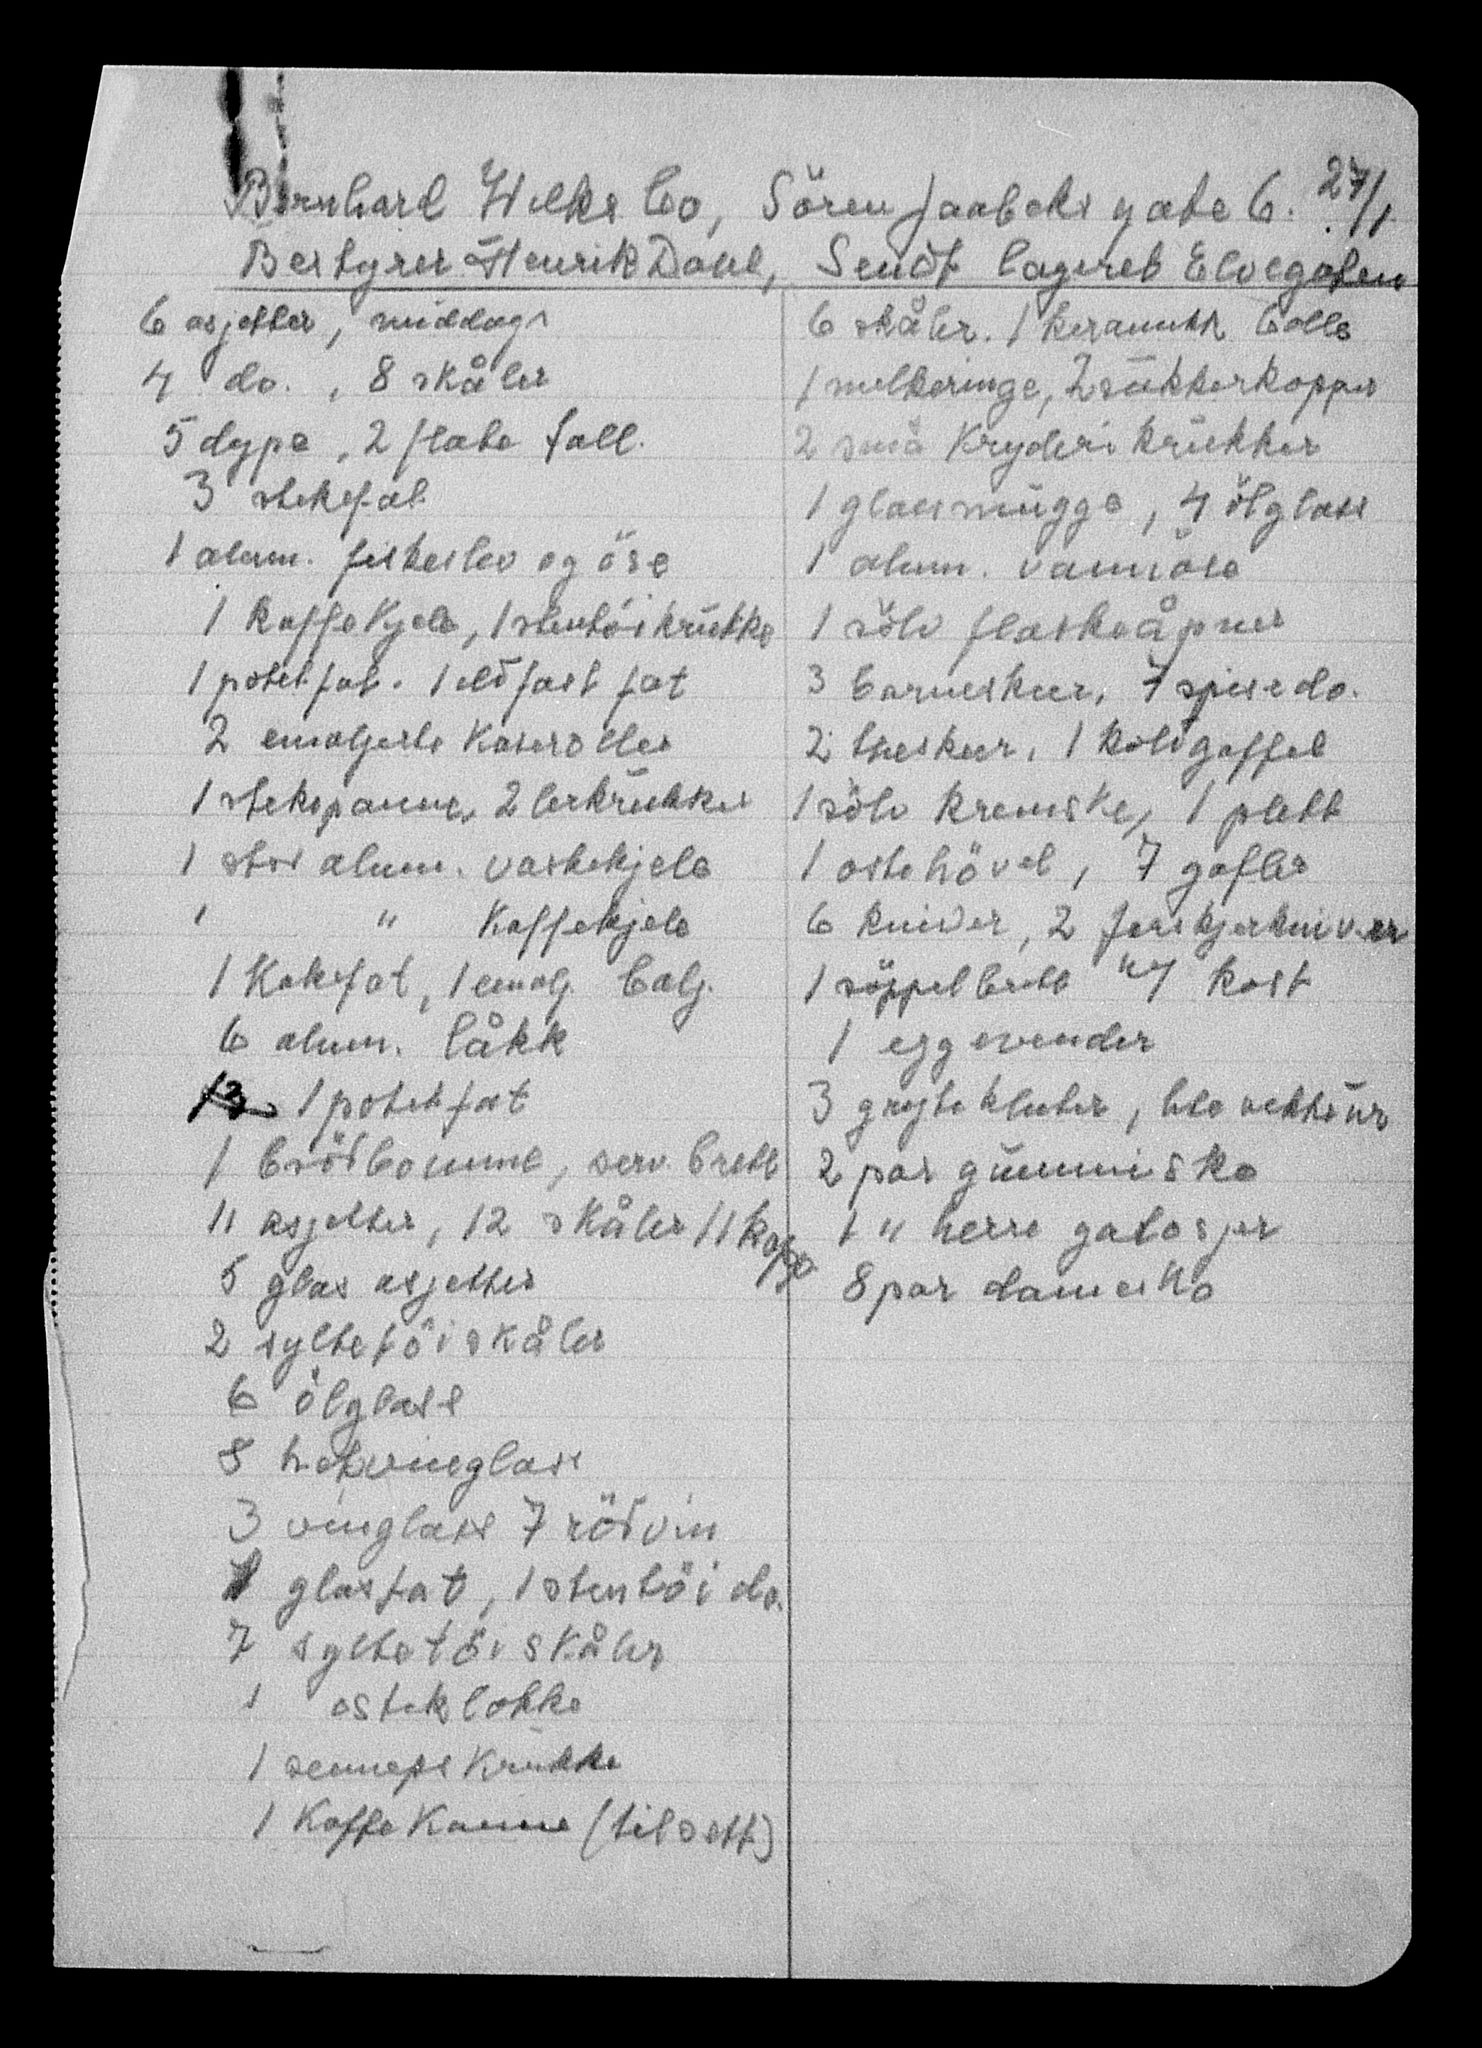 27/1
Bernhard Wilks Co, Sören Jaabeks gate 6.
Bestyrer Henrik Dahl, Sendt lageret Elvegaten
6 asjetter, middags
4 do. , 8 skåler
5 dype, 2 flate tall.
3 stekefat
1 alum. fiskeslev og öse
1 Kaffekjele, 1 stentöikrukke
1 potetfat. 1 ildfast fat
2 emaljerte Kaseroller
1 stekepanne, 2 lerkrukker
1 stor alum. vaskekjele
1 " Kaffekjele
1 Kakefat, 1 emalj. balj.
6 alum. låkk
1 potetfat
1 brödbomme, serv. brett
11 asjetter, 12 skåler 11 kopp.
5 glas asjetter
2 syltetöiskåler
6 ölglass
8 hetvinsglass
3 vinglass 7 rödvin
1 glasfat, 1 stentöi do.
7 syltetöiskåler
1 osteklokke
1 senneps Krukke
1 Kaffe Kanne (til sett)
6 skåler. 1 keramikk bolle
1 melkeringe, 2 sukkerkopper
2 små Kryderikrukker
1 glassmugge, 4 ölglass
1 alum. vannöse
1 sölv flaskeåpner
3 barneskeer, 7 spise do.
2 theskeer, 1 köttgaffel
1 sölv kremske, 1 plett
1 ostehövel, 7 gafler
6 kniver, 2 forskjerkniver
1 söppelbrett " 1 kost
1 eggevender
3 grytekluter, lite vekkeur
2 par gummisko
1 " herre galosjer
8 par damesko